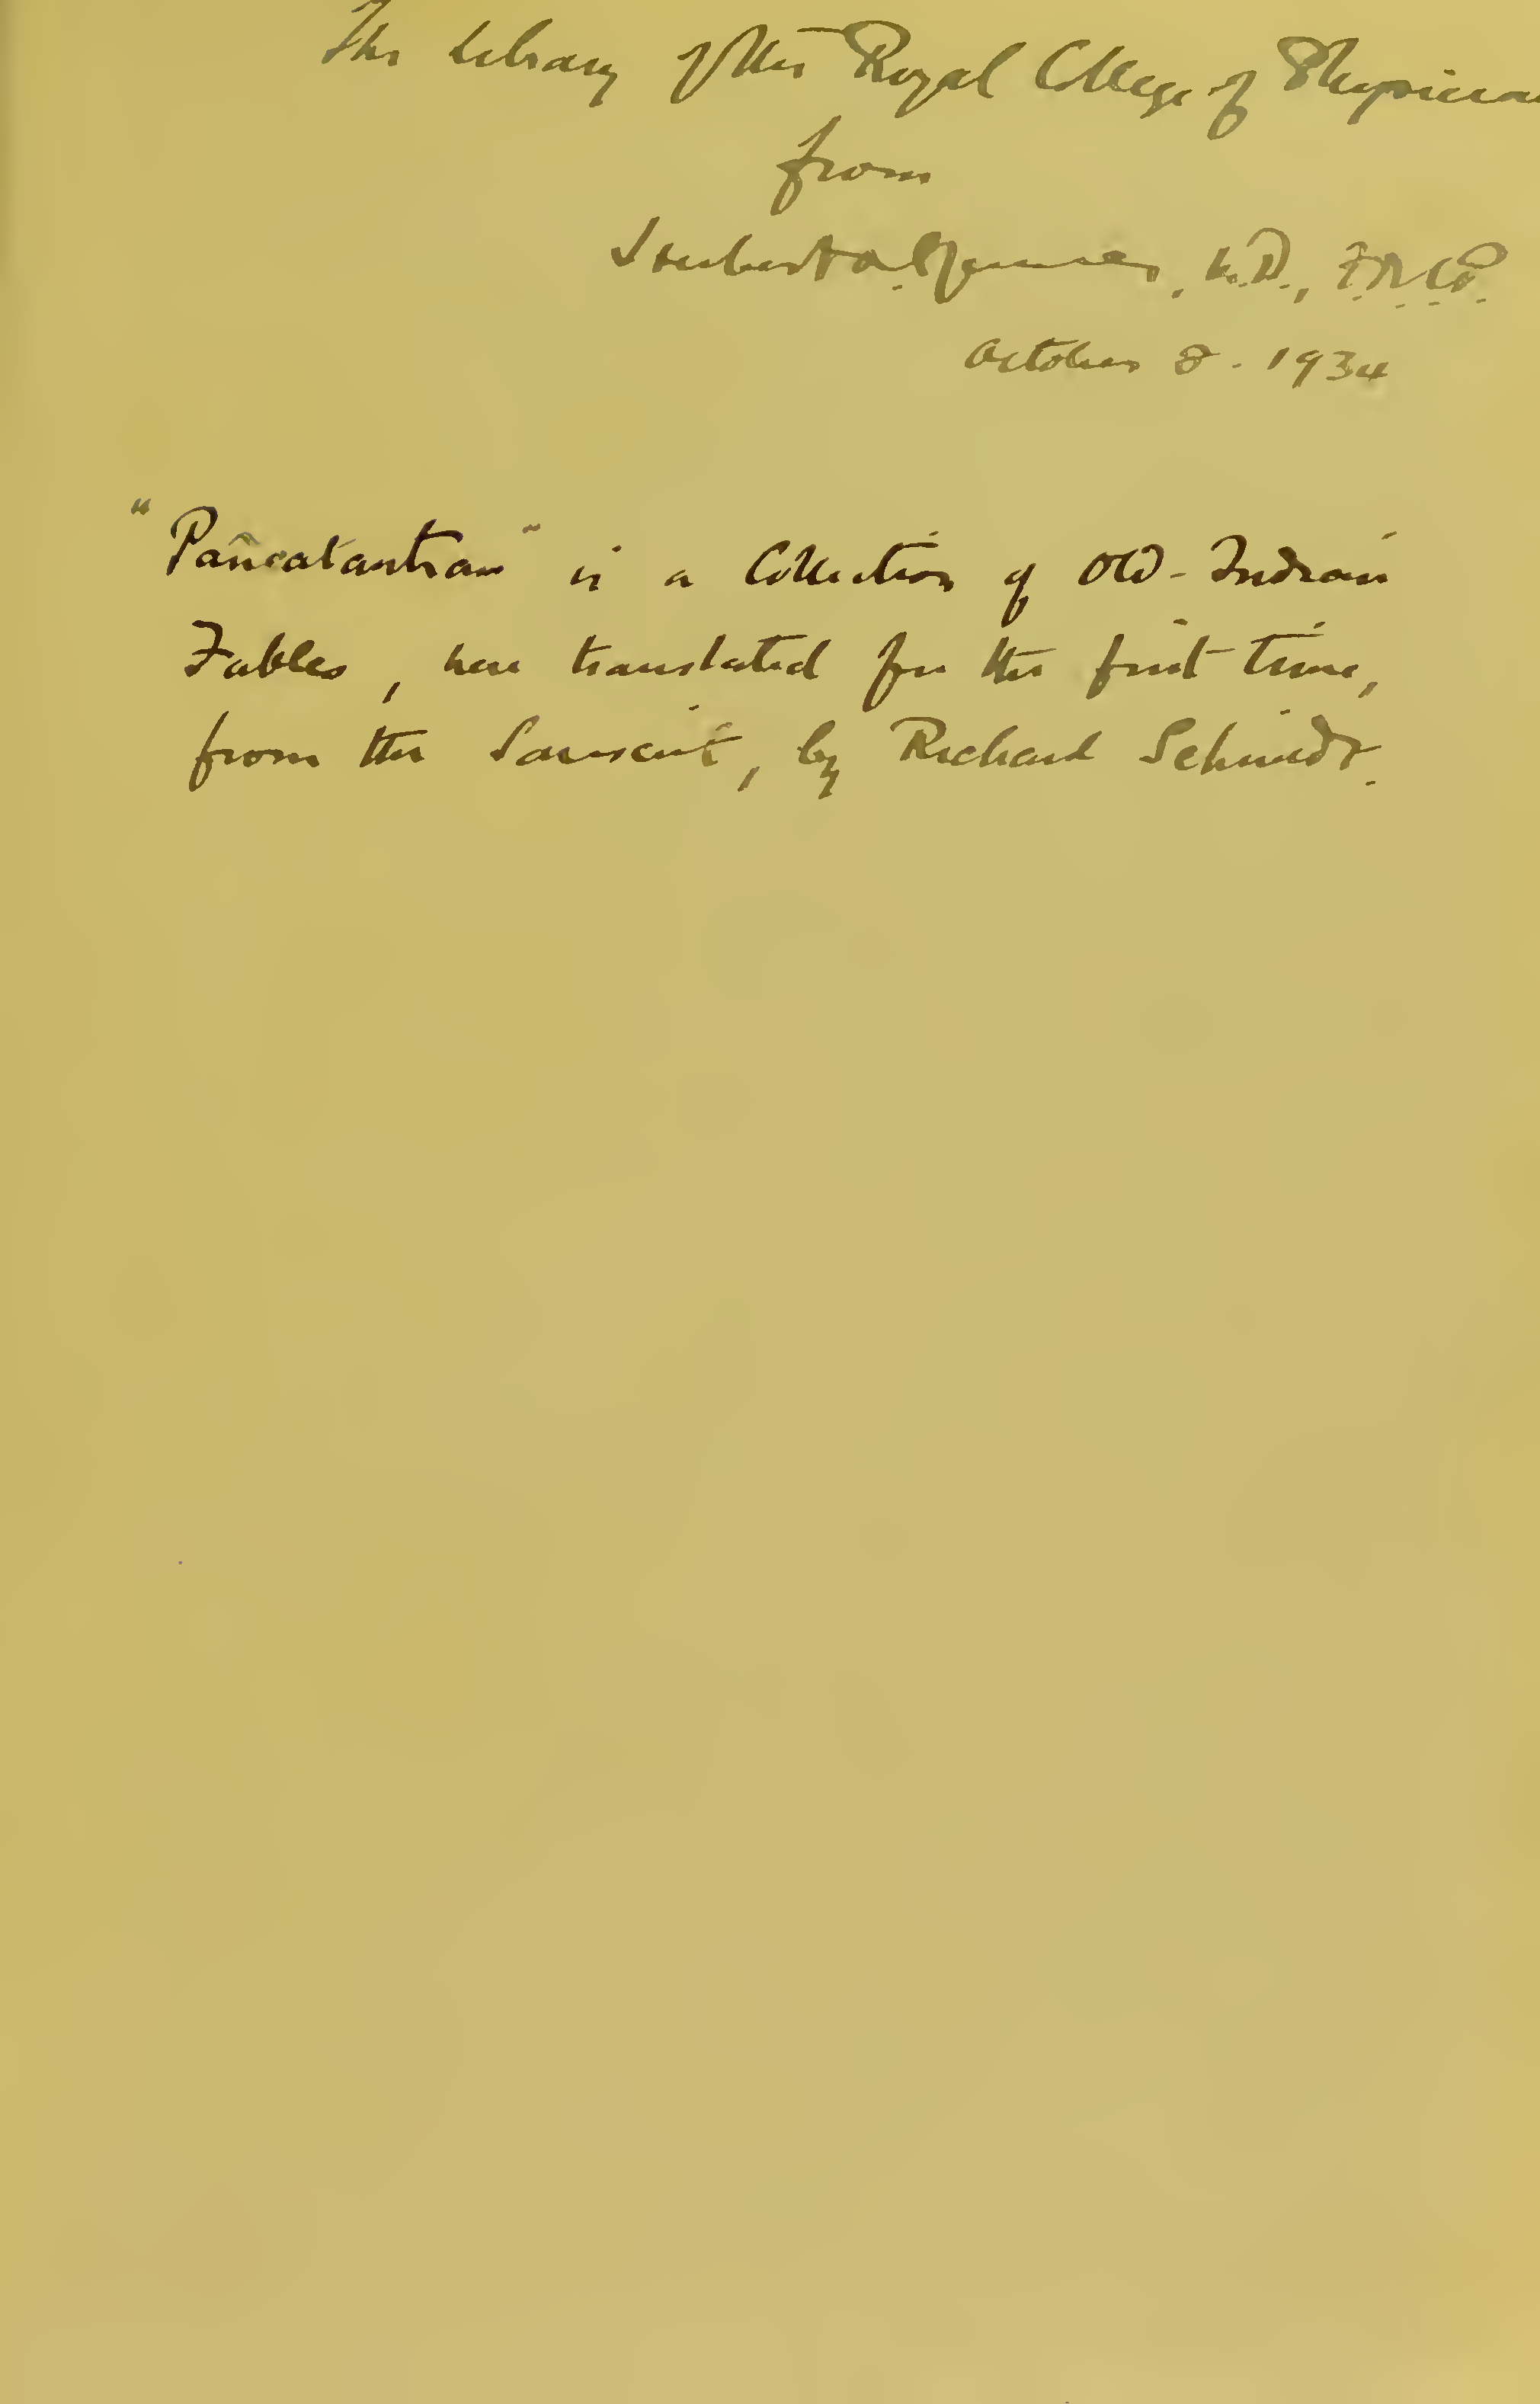 The Library of the Royal College of Physician
from
Herbert R. Spencer, M.D., F.R.C.P.
October 8. 1934
"Pañcatantram" is a Collection of Old-Indian
Fables, here translated for the first time,
from the Sanscrit, by Richard Schmidt.